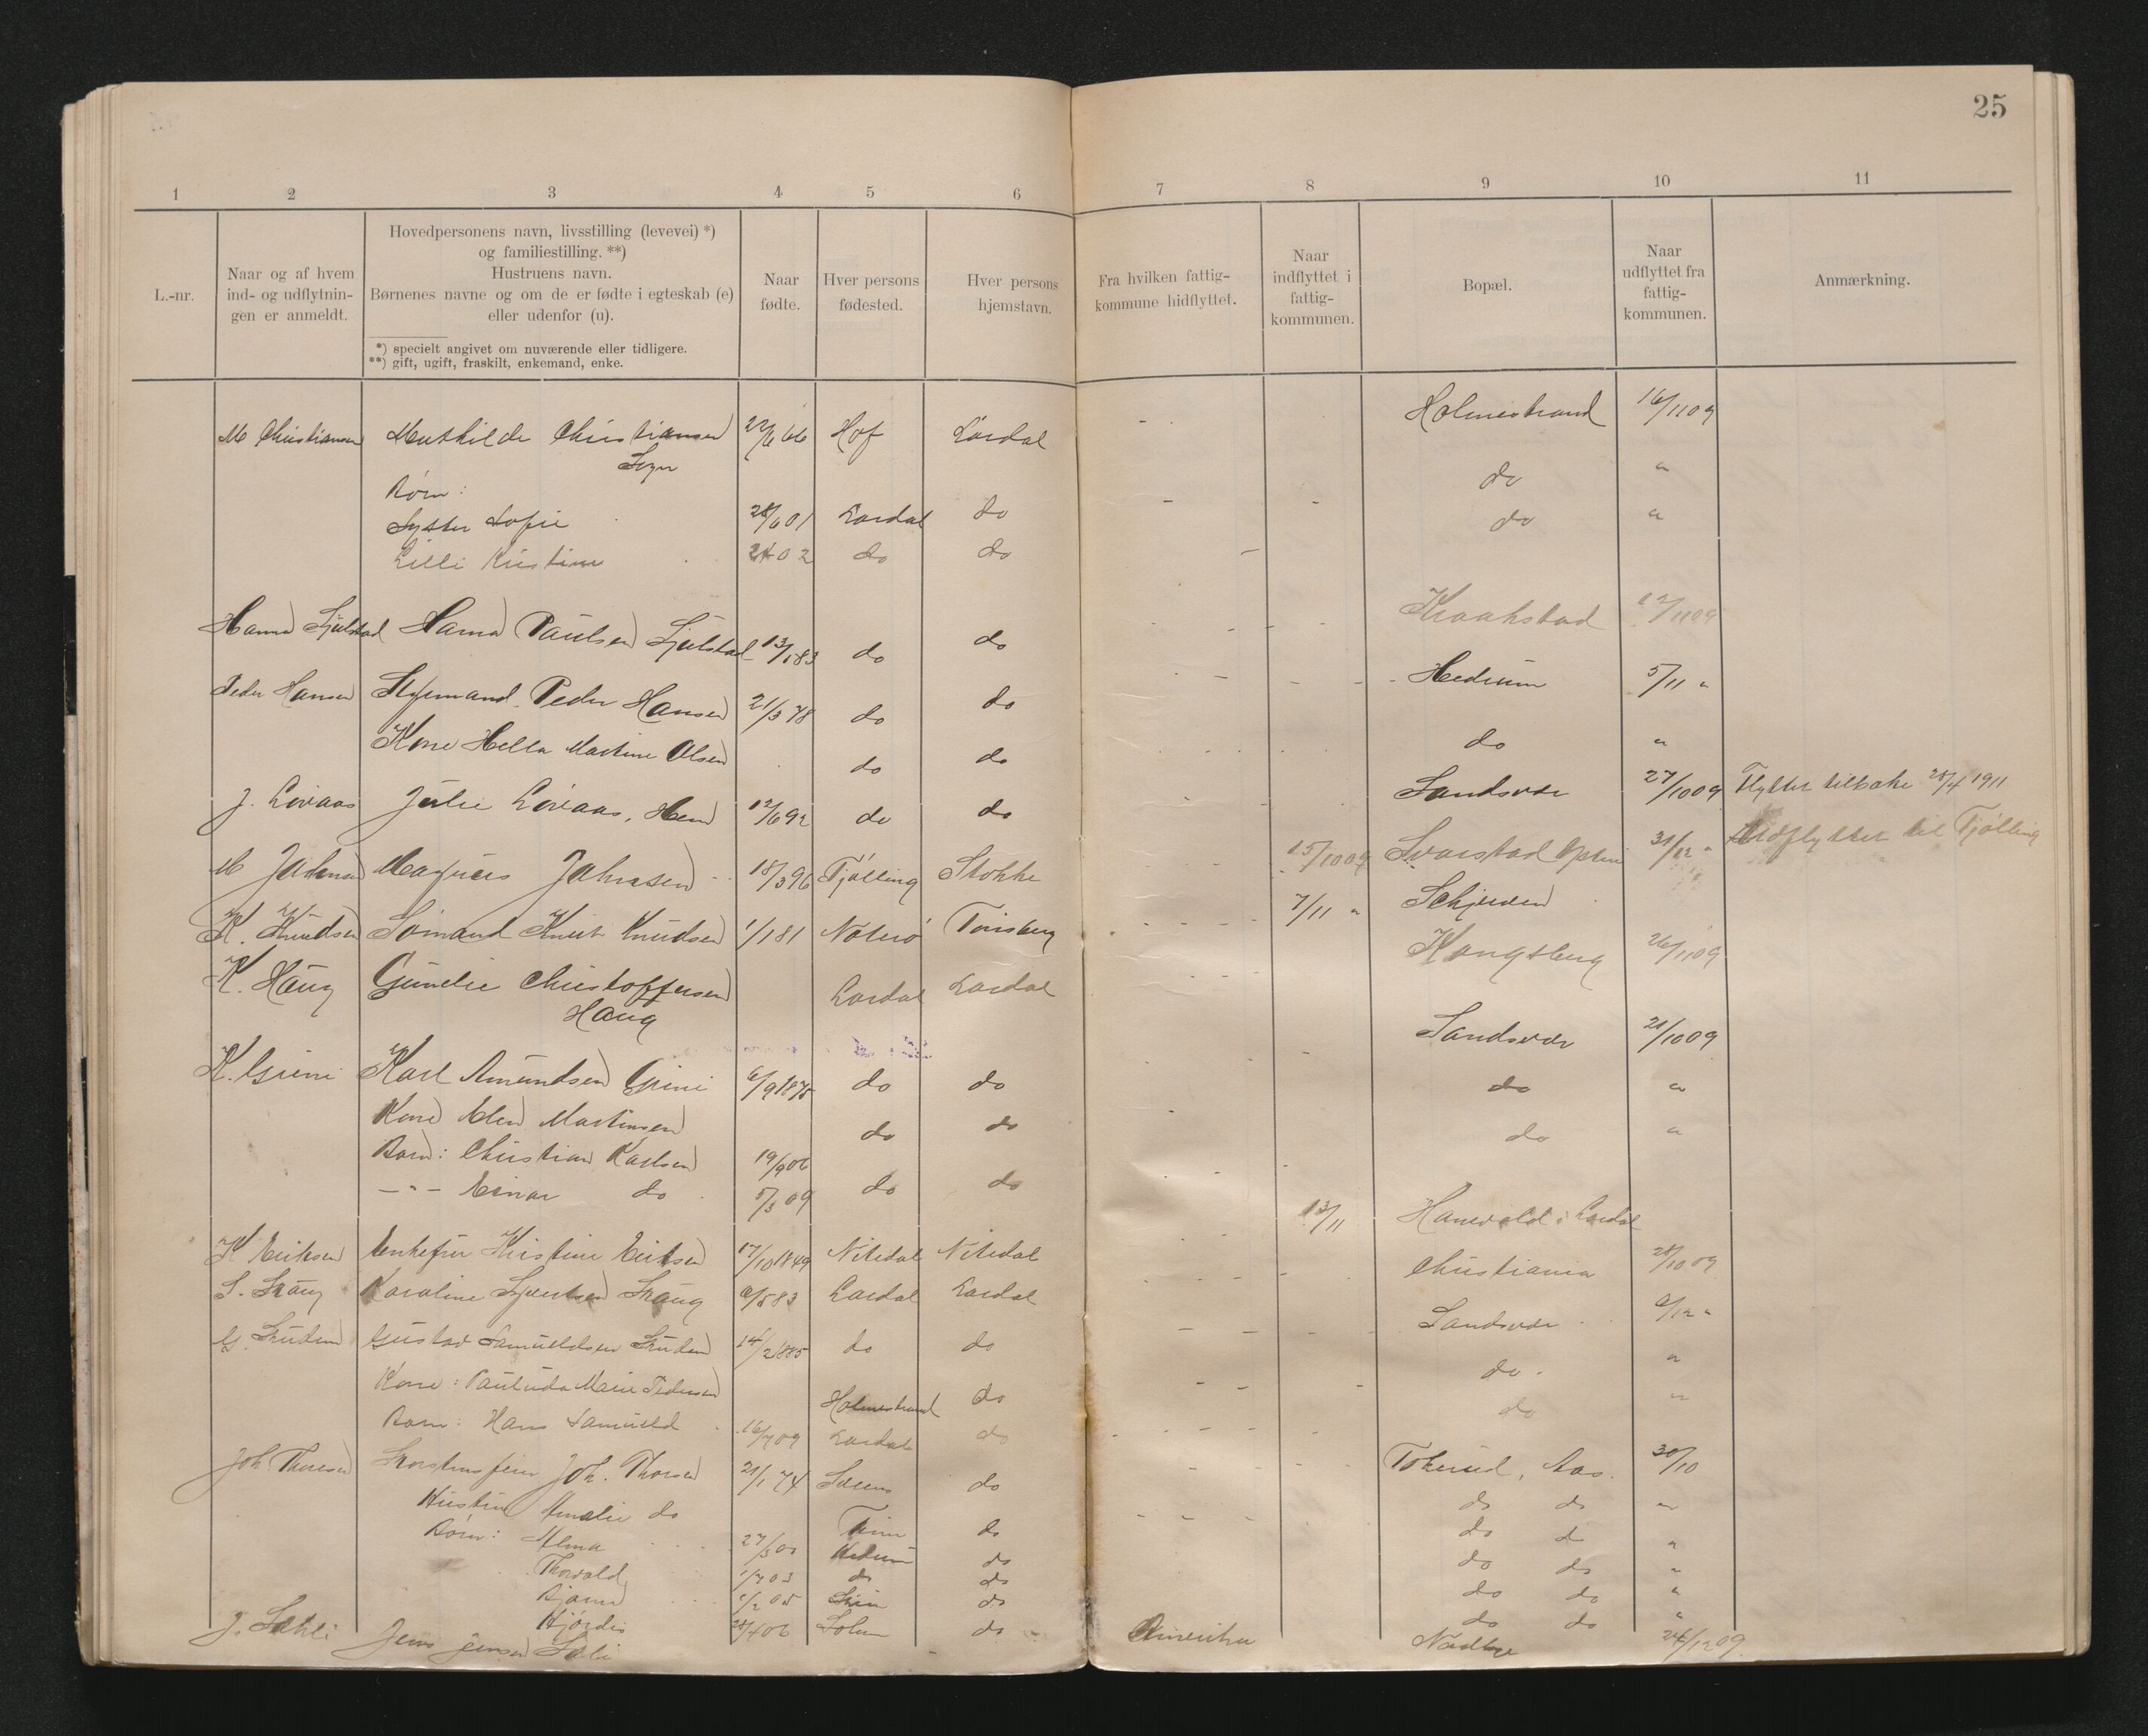 25
1 2 3 4 5 6 7 8 9 10 11
L.-nr.
Naar og af hvem
ind- og udflytnin-
gen er anmeldt.
Hovedpersonens navn, livsstilling (levevei) *)
og familiestilling. **)
Hustruens navn.
Børnenes navne og om de er fødte i egteskab (e)
eller udenfor (u).
*) specielt angivet om nuværende eller tidligere.
**) gift, ugift, fraskilt, enkemand, enke.
Naar
fødte.
Hver persons
fødested.
Hver persons
hjemstavn.
Fra hvilken fattig-
kommune hidflyttet.
Naar
indflyttet i
fattig-
kommunen.
Bopæl.
Naar
udflyttet fra
fattig-
kommunen.
Anmærkning.
M Christiansen Mathilde Christiansen 22/6 66 Hof Lardal - Holmestrand 16/11 09
Børn: do "
Sofie 28/6 01 Lardal do - - do "
Lilli Kristine 02 do do -
Hanna Hanna Paulsen 13/1 83 do do Kraakstad 12/11 09
Peder Hansen Peder Hansen 21/3 78 do do Hedrum 5/11 "
Kone Martine Olsen do do do "
J. Løvaas Julie Løvaas, Hem 12/6 92 do do Sandsvær 27/10 09 Flyttet tilbake 28/4 1911
M Jahnsen Magnus Jahnsen 18/3 96 Tjølling Stokke 15/10 09 Svarstad 31/12 " Udflyttet til Tjølling
K. Knudsen Sømand Knut Knudsen 1/1 81 Nøterø Tønsberg 7/11 " Schjerven
K. Haug Gunelie Christoffersen Lardal Lardal Kongsberg 26/11 09
Haug
K. Grini Karl Amundsen Grini 6/9 1875 do do Sandsvær 21/10 09
Kone Martinsen do do do "
Barn: Christian Karlsen 19/9 06 do "
-"- Einar do 5/3 09 do do
K Eriksen Enkefru Kristine Eriksen 17/10 1849 Nitedal Nitedal 13/11 Hanevold i Lardal
S. Skaug Karoline Skaug /5 83 Lardal Lardal Christiania 28/10 09
G. Gustav Samuelsen 14/2 1885 do do Sandsvær /12 "
Kone: Marie Pedersen Holmestrand do do "
Barn: Hans 16/7 09 Lardal do do "
Joh. Thoresen Joh. Thoresen 21/1 74 do Tokerud, Aas. 30/10
Amalie do do do do "
Børn: Alma 27/3 Hedrum do do do "
Thorvald 1/7 03 do do do do "
Bjarne /2 05 do do do "
Hjørdis 28/4 06 Solum do do do "
J. Sæhli Jens Jensen Amerika 24/12 09